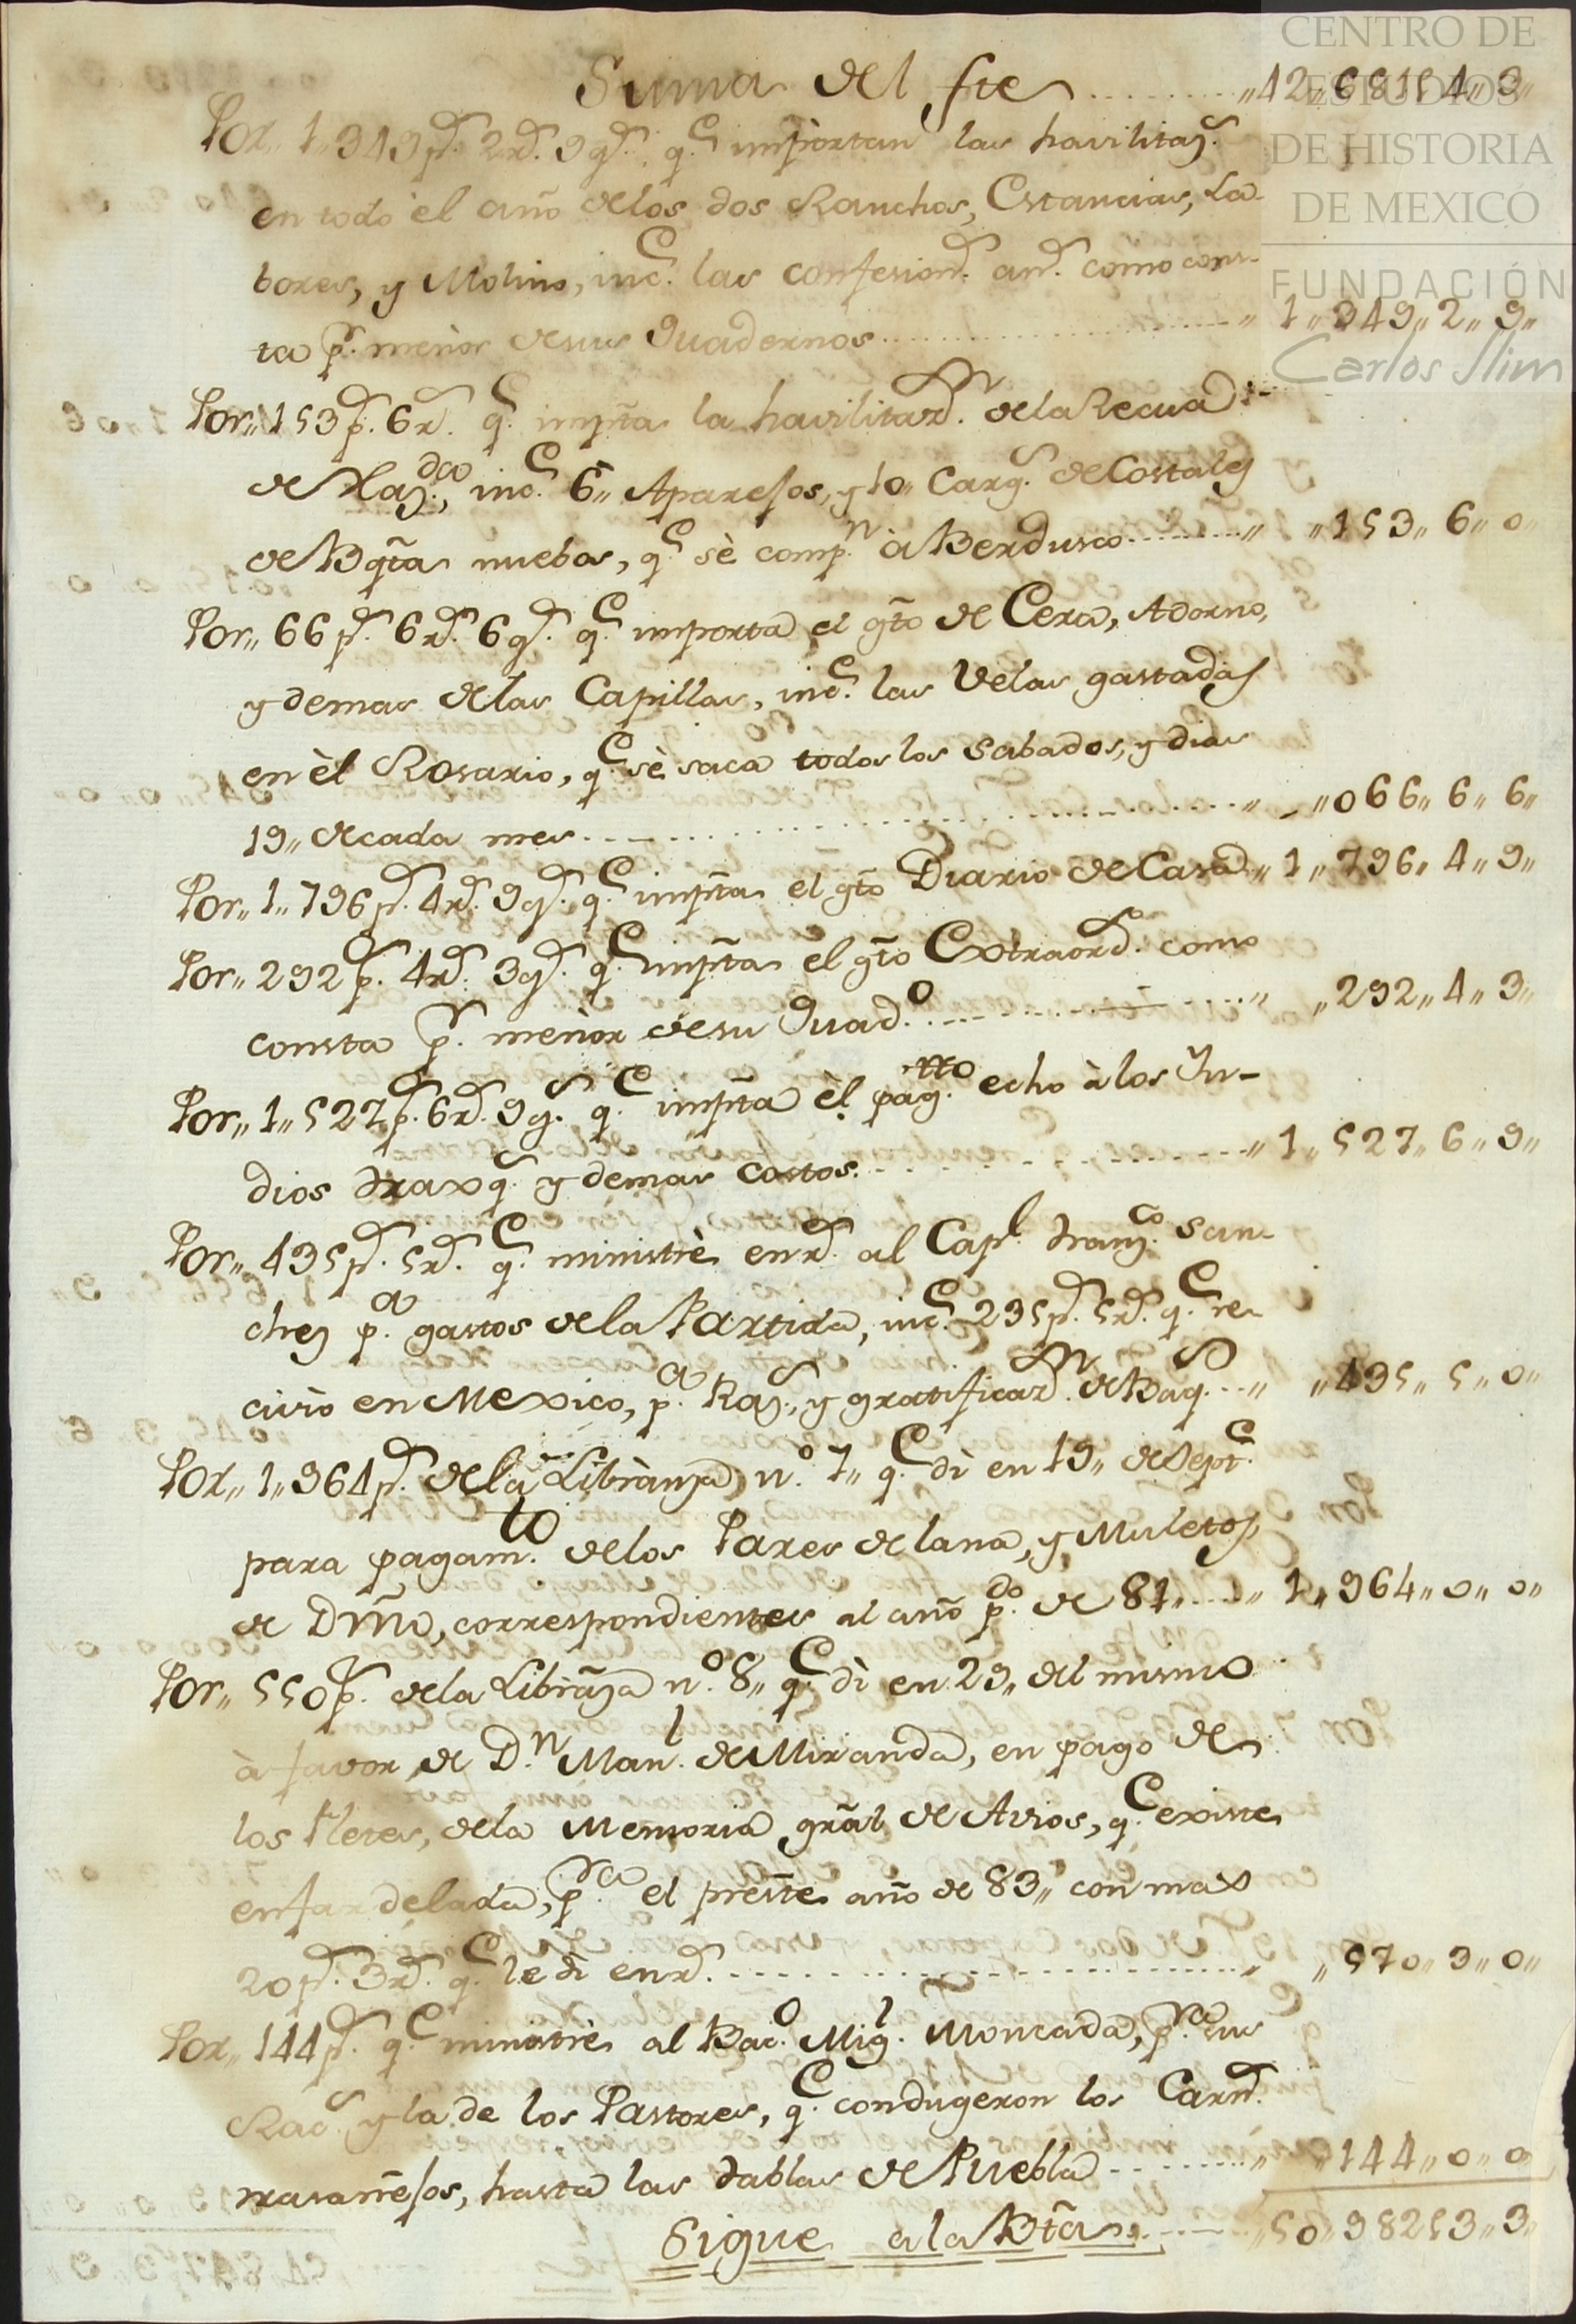 CENTRO DE
ESTUDIOS
DE HISTORIA
DE MEXICO
FUNDACIÓN
Carlos Slim
Suma del fte ..... „42„681„4„9„
Por„ 1„349 ps. 2 rs. 9 gs. qe. importan las havilitazs.
en todo el año de los dos Ranchos, Estancias, La-
bores, y Molino, ince. las confesions. ans. como cons-
ta pr. menòr de sus Quadernos ..... „ 1„349„2„9„
Por„ 153 ps. 6 rs. qe. impta la havilitazn. de la Recua
de Haz.da, ince. 6„ Aparejos, y 10„ Cargs. de Costales
de Bqta nuebos, qe. sè compn. à Berdusco ..... „ „153„6„0„
Por„ 66 ps. 6 rs. 6 gs. qe. importa el gto de Cera, Adorno,
y demas de las Capillas, ince. las Velas gastadas
en èl Rosario, qe. sè saca todos los Sabados, y dias
19„ de cada mes ..... „ „066„6„6„
Por„ 1„796 ps. 4 rs. 9 gs. qe. impta el gto Diario de Casa „ 1„796„4„9„
Por„ 292 ps. 4 rs. 3 gs. qe. impta el gto Extraord. como
consta pr. menòr de su Quad.o ..... „ „292„4„3„
Por„ 1„527 ps. 6 rs. 9 gs. qe. impta èl pag.tto echo à los Yn-
dios traxqs. y demas costos ..... „ 1„527„6„9„
Por„ 435 ps. 5 rs. qe. ministrè en rs. al Capl. Franco. San-
chez pa. gastos de la Partida, ince. 235 ps. 5 rs. qe. re-
civiò en Mexico, pa. Razs., y gratificazn. de Baqs. ... „ „435„5„0„
Por„ 1„964 ps. de la Libranza no. 7„ qe. dì en 19„ de Septe.
para pagamto. de los Pares de lana, y Muletos,
de Dmo, correspondientes al año pdo. de 81„ .... „ 1„964„0„0„
Por„ 550 ps. de la Libraza no. 8„ qe. dì en 29„ del mismo
à favor de Dn. Manl. de Miranda, en pago de
los Fletes, de la Memoria gral de Avios, qe. existe
enfardelada, pra. el preste año de 83„ con mas
20 ps. 3 rs. qe. le dì en rs. ..... „ „570„3„0„
Por„ 144 ps. qe. ministrè al Baco. Migl. Moncada, pra. sus
Racs. y la de los Pastores, qe. condugeron los Carns.
masañejos, hasta las Tablas de Puebla ..... „ „144„0„0
Sigue a la Bta. ..... „50„982„3„3„